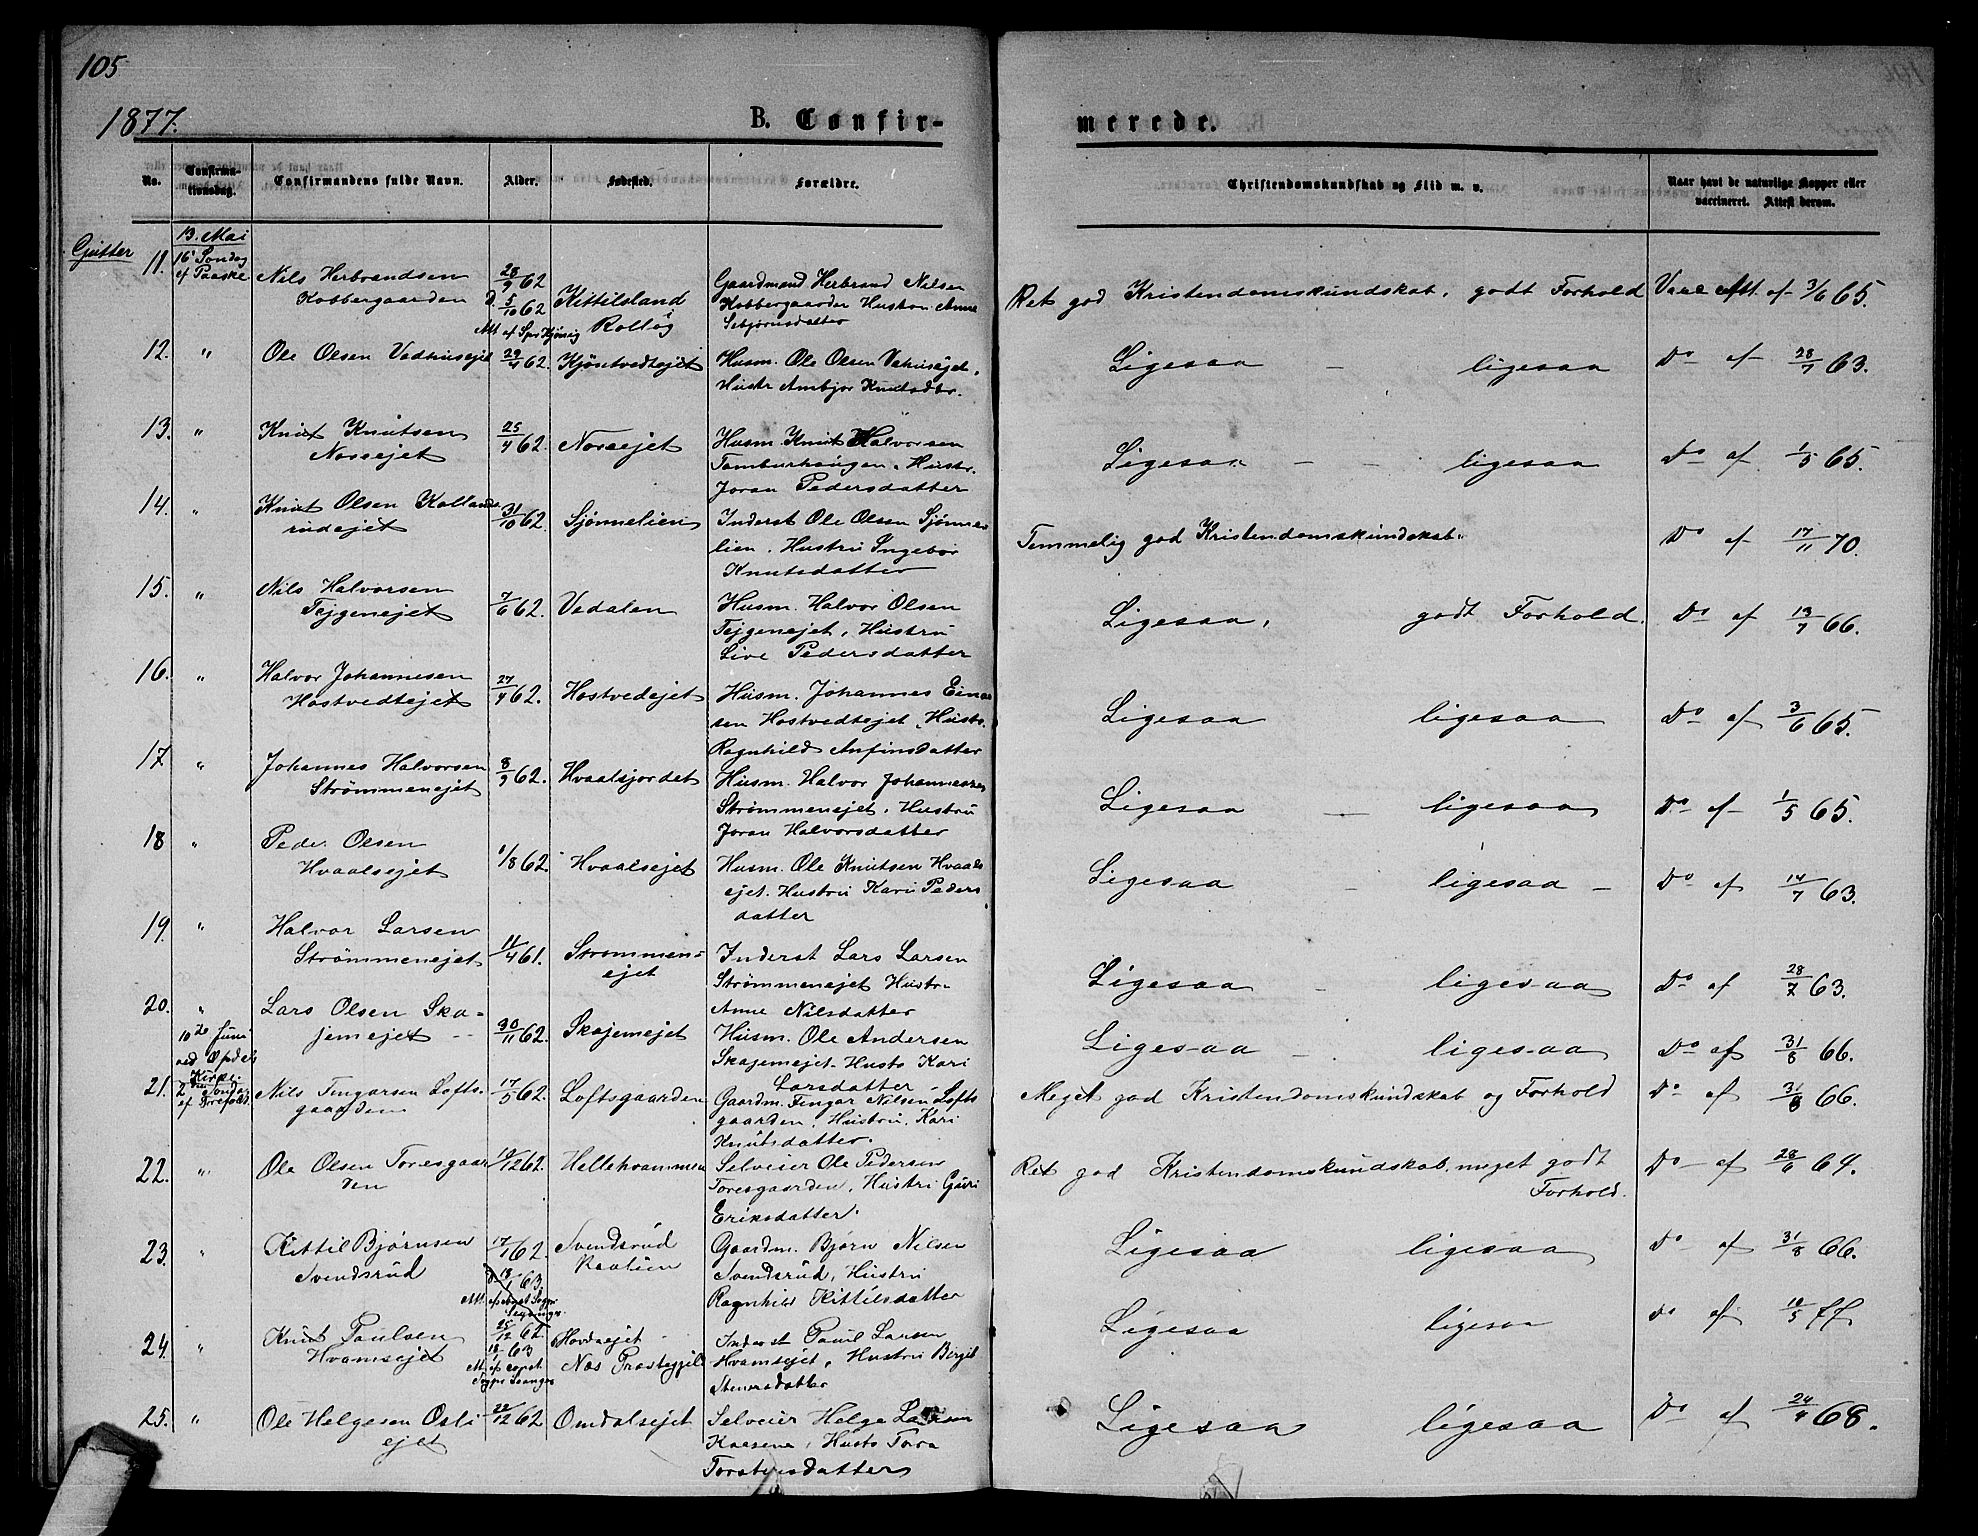 105
1877.
B. Confir-
merede.
No.
Confirma-
tionsdag.
Confirmandens fulde Navn.
Alder.
Fødested.
Forældre.
Christendomskundskab og Flid m. v.
Naar havt de naturlige Kopper eller
vaccineret. Attest derom.
Gutter
11. 13. Mai Nils Herbrandsen 28/9 62 Kittilsland Gaardmand Herbrand Nilsen Ret god Kristendomskundskab, godt Forhold Vacc Att. af 3/6 65.
Søndag
ef Paaske Kobbergaarden d. 5/10 62 i Rollag Kobbergaarden Hustru Anne
Att af Spr
12. " Ole Olsen 29/4 62. Husm. Ole Olsen Ligesaa - ligesaa Do af 28/7 63.
Hustr Ambjør Knutsdtr.
13. " Knut Knutsen 25/4 62. Noreejet Husm. Knut Halvorsen Ligesaa - - ligesaa Do af 1/5 65.
Noreejet Hustr.
Joran Pedersdatter
14. " Knut Olsen Kolland- 31/10 62. Sjønnelien Inderst Ole Olsen Sjønne- Temmelig god Kristendomskundskab. Do af 17/11 70.
rudejet lien. Hustru Ingebor
Knutsdatter
15. " Nils Halvorsen 7/6 62. Vedalen Husm. Halvor Olsen Ligesaa, godt Forhold. Do af 13/7 66.
Tejgenejet Tejgenejet, Hustru
Live Pedersdatter
16. " Halvor Johannesen 27/4 62. Hostvedejet Husm. Johannes Einar- Ligesaa ligesaa Do af 3/6 65.
Hostvedtejet sen Hostvedtejet, Hustr.
Ragnhild Anfinsdatter
17. " Johannes Halvorsen 8/9 62. Hvaalsjordet Husm. Halvor Johannesen Ligesaa - ligesaa Do af 1/5 65.
Strømmenejet Strømmenejet, Hustru
Joran Halvorsdatter
18 " Peder Olsen 1/8 62. Hvaalsejet Husm. Ole Knutsen Hvaals- Ligesaa - ligesaa - Do af 14/7 63.
Hvaalsejet ejet. Hustru Kari Peders
datter
19. " Halvor Larsen 11/4 61. Strømmen- Inderst Lars Larsen Ligesaa - ligesaa Do af 28/7 63.
Strømmenejet ejet Strømmenejet Hustr.
Anne Nilsdatter
20. " Lars Olsen Ska- 30/11 62. Skajemejet Husm. Ole Andersen Ligesaa - ligesaa Do af 31/8 66.
jemejet Skajemejet. Hustr Kari
Larsdatter
10de Juni
ved Opdals
Kirke.
21. 2den Søndag Nils Fingarsen Lofts- 17/5 62. Loftsgaarden Gaardm. Fingar Nilsen Lofts Meget god Kristendomskundskab og Forhold Do af 31/8 66.
ef Trefold. gaarden gaarden, Hustru, Kari
Knutsdatter.
22. " Ole Olsen Toresgaar 10/12 62. Hellehvammen Selveier Ole Pedersen Ret god Kristendomskundskab, meget godt Do af 28/6 64.
den Toresgaarden, Hustru Guri Forhold.
Eriksdatter.
23. " Kittil Bjørnsen 17/1 62. Svendsrud Gaardm. Bjørn Nilsen Ligesaa ligesaa Do af 31/8 66.
Svendsrud Svendsrud, Hustru
Ragnhild Kittilsdatter
24. " Knut Paulsen 25/12 62 Hovdeejet Inderst Paul Larsen Ligesaa ligesaa Do af 10/5 77
Hvamsejet 63 Nes Præstegjeld Hvamsejet, Hustru Birgit
Stenersdatter
25. " Ole Helgesen Osli 22/12 62 Omdalsejet Selveier Helge Larsen Ligesaa ligesaa Do af 24/4 68.
ejet Hustr Tora
Torstensdatter